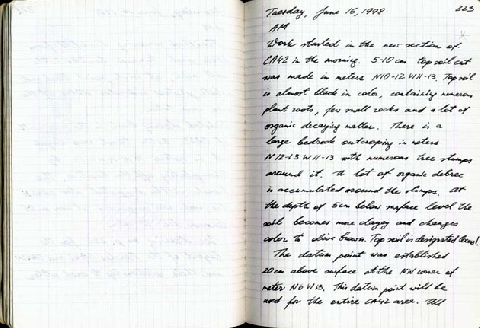 Tuesday, June 16, 1988 223
AM
Work started in the new section of
CA42 in the morning. 5-10 cm top soil cut
was made in meters N10-12 W11-13. Top soil
is almost black in color, containing numerous
plant roots, few small rocks and a lot of
organic decaying matter. There is a
large bedrock outcropping in meters
N12-13 W11-13 with numerous tree stumps
around it. A lot of organic debree
is accumulated around the stumps. At
the depth of 5cm below surface level the
soil becomes more clayey and changes
color to olive brown. Top soil is designated level
The datum point was established
20cm above surface at the NW corner of
meter W13. This datum point will be
used for the entire CA42 area.